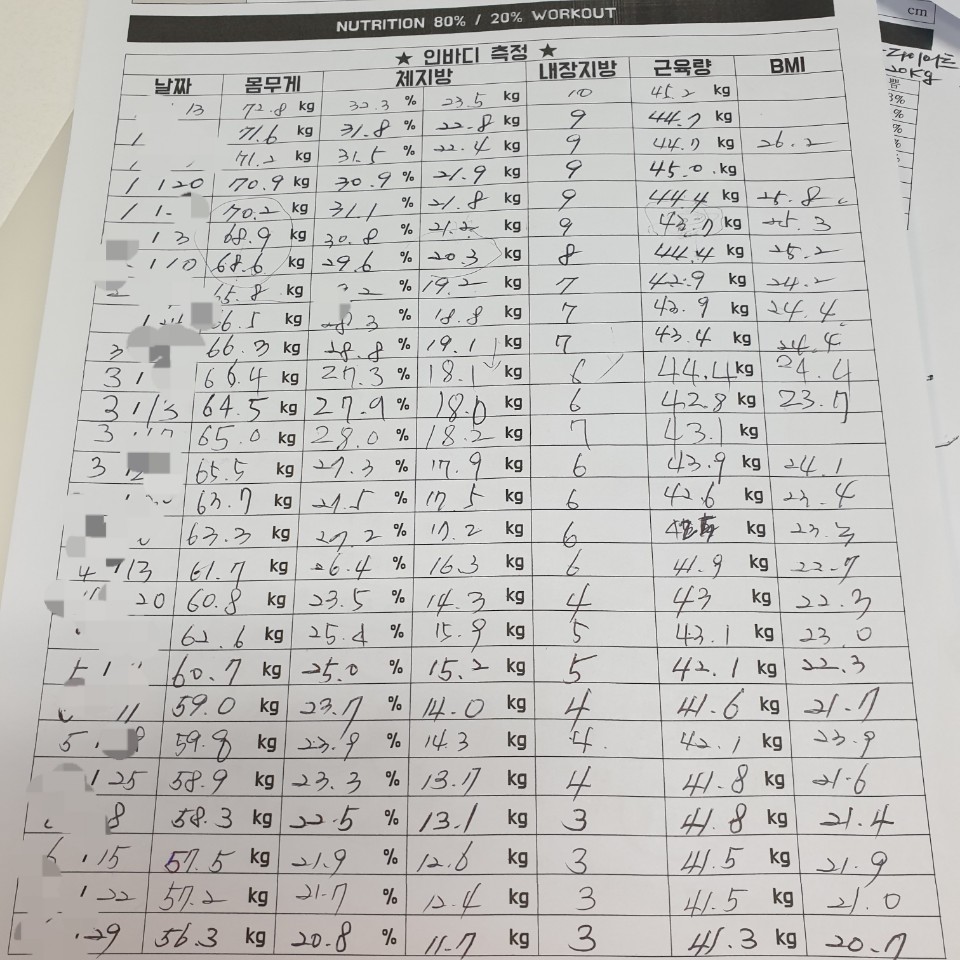 NUTRITION 80% / 20% WORKOUT
cm
★ 인바디 측정 ★
날짜 몸무게 체지방 내장지방 근육량 BMI
13 72.8 kg 32.3 % 23.5 kg 10 45.2 kg
1 71.6 kg 31.8 % 22.8 kg 9 44.7 kg
71.2 kg 31.5 % 22.4 kg 9 44.7 kg 26.2
1 120 70.9 kg 30.9 % 21.9 kg 9 45.0 kg
70.2 kg 31.1 % 21.8 kg 9 44.4 kg 25.8
13 68.9 kg 30.8 % 21.2 kg 9 43.7 kg 25.3
110 68.6 kg 29.6 % 20.3 kg 8 44.4 kg 25.2
kg % 19.2 kg 7 42.9 kg 24.2
kg % 18.8 kg 7 43.9 kg 24.4
3 66.3 kg 28.8 % 19.1 kg 7 43.4 kg 24.4
31 66.4 kg 27.3 % 18.1 kg 6 44.4 kg 24.4
3 1/3 64.5 kg 27.9 % 18.0 kg 6 42.8 kg 23.7
3 65.0 kg 28.0 % 18.2 kg 7 43.1 kg
3 65.5 kg 27.3 % 17.9 kg 6 43.9 kg 24.1
63.7 kg 27.5 % 17.5 kg 6 42.6 kg 23.4
63.3 kg 27.2 % 17.2 kg 6 kg 23.3
4 /13 61.7 kg 26.4 % 16.3 kg 6 41.9 kg 22.7
20 60.8 kg 23.5 % 14.3 kg 4 43 kg 22.3
62.6 kg 25.4 % 15.9 kg 5 43.1 kg 23.0
60.7 kg 25.0 % 15.2 kg 5 42.1 kg 22.3
11 59.0 kg 23.7 % 14.0 kg 4 41.6 kg 21.7
5. 59.8 kg 23.9 % 14.3 kg 4. 42.1 kg 23.9
/25 58.9 kg 23.3 % 13.7 kg 4 41.8 kg 21.6
8 58.3 kg 22.5 % 13.1 kg 3 41.8 kg 21.4
15 57.5 kg 21.9 % 12.6 kg 3 41.5 kg 21.9
22 57.2 kg 21.7 % 12.4 kg 3 41.5 kg 21.0
29 56.3 kg 20.8 % 11.7 kg 3 41.3 kg 20.7